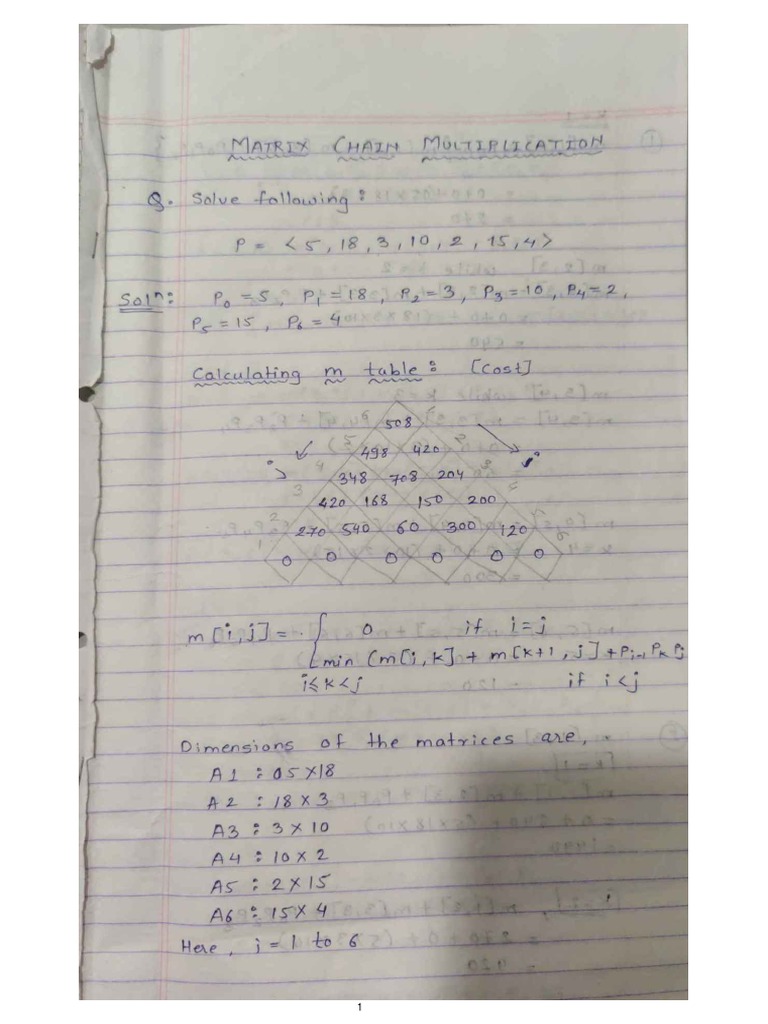 MATRIX CHAIN MULTIPLICATION
Q. Solve following:
P = <5, 18, 3, 10, 2, 15, 4>
Solⁿ: P₀ = 5, P₁ = 18, P₂ = 3, P₃ = 10, P₄ = 2,
P₅ = 15, P₆ = 4
Calculating m table: [cost]
508
498 420
348 708 204
420 168 150 200
270 540 60 300 120
0 0 0 0 0 0
m[i,j] = { 0 if i=j
min (m[i,k] + m[k+1,j] + Pᵢ₋₁ Pₖ Pⱼ
i≤k<j if i<j
Dimensions of the matrices are,
A1 : 05 X 18
A2 : 18 X 3
A3 : 3 X 10
A4 : 10 X 2
A5 : 2 X 15
A6 : 15 X 4
Here, i = 1 to 6
1